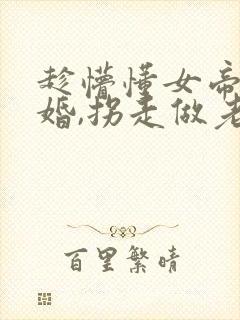 趁懵懂女帝
婚,拐走做老
百里繁晴